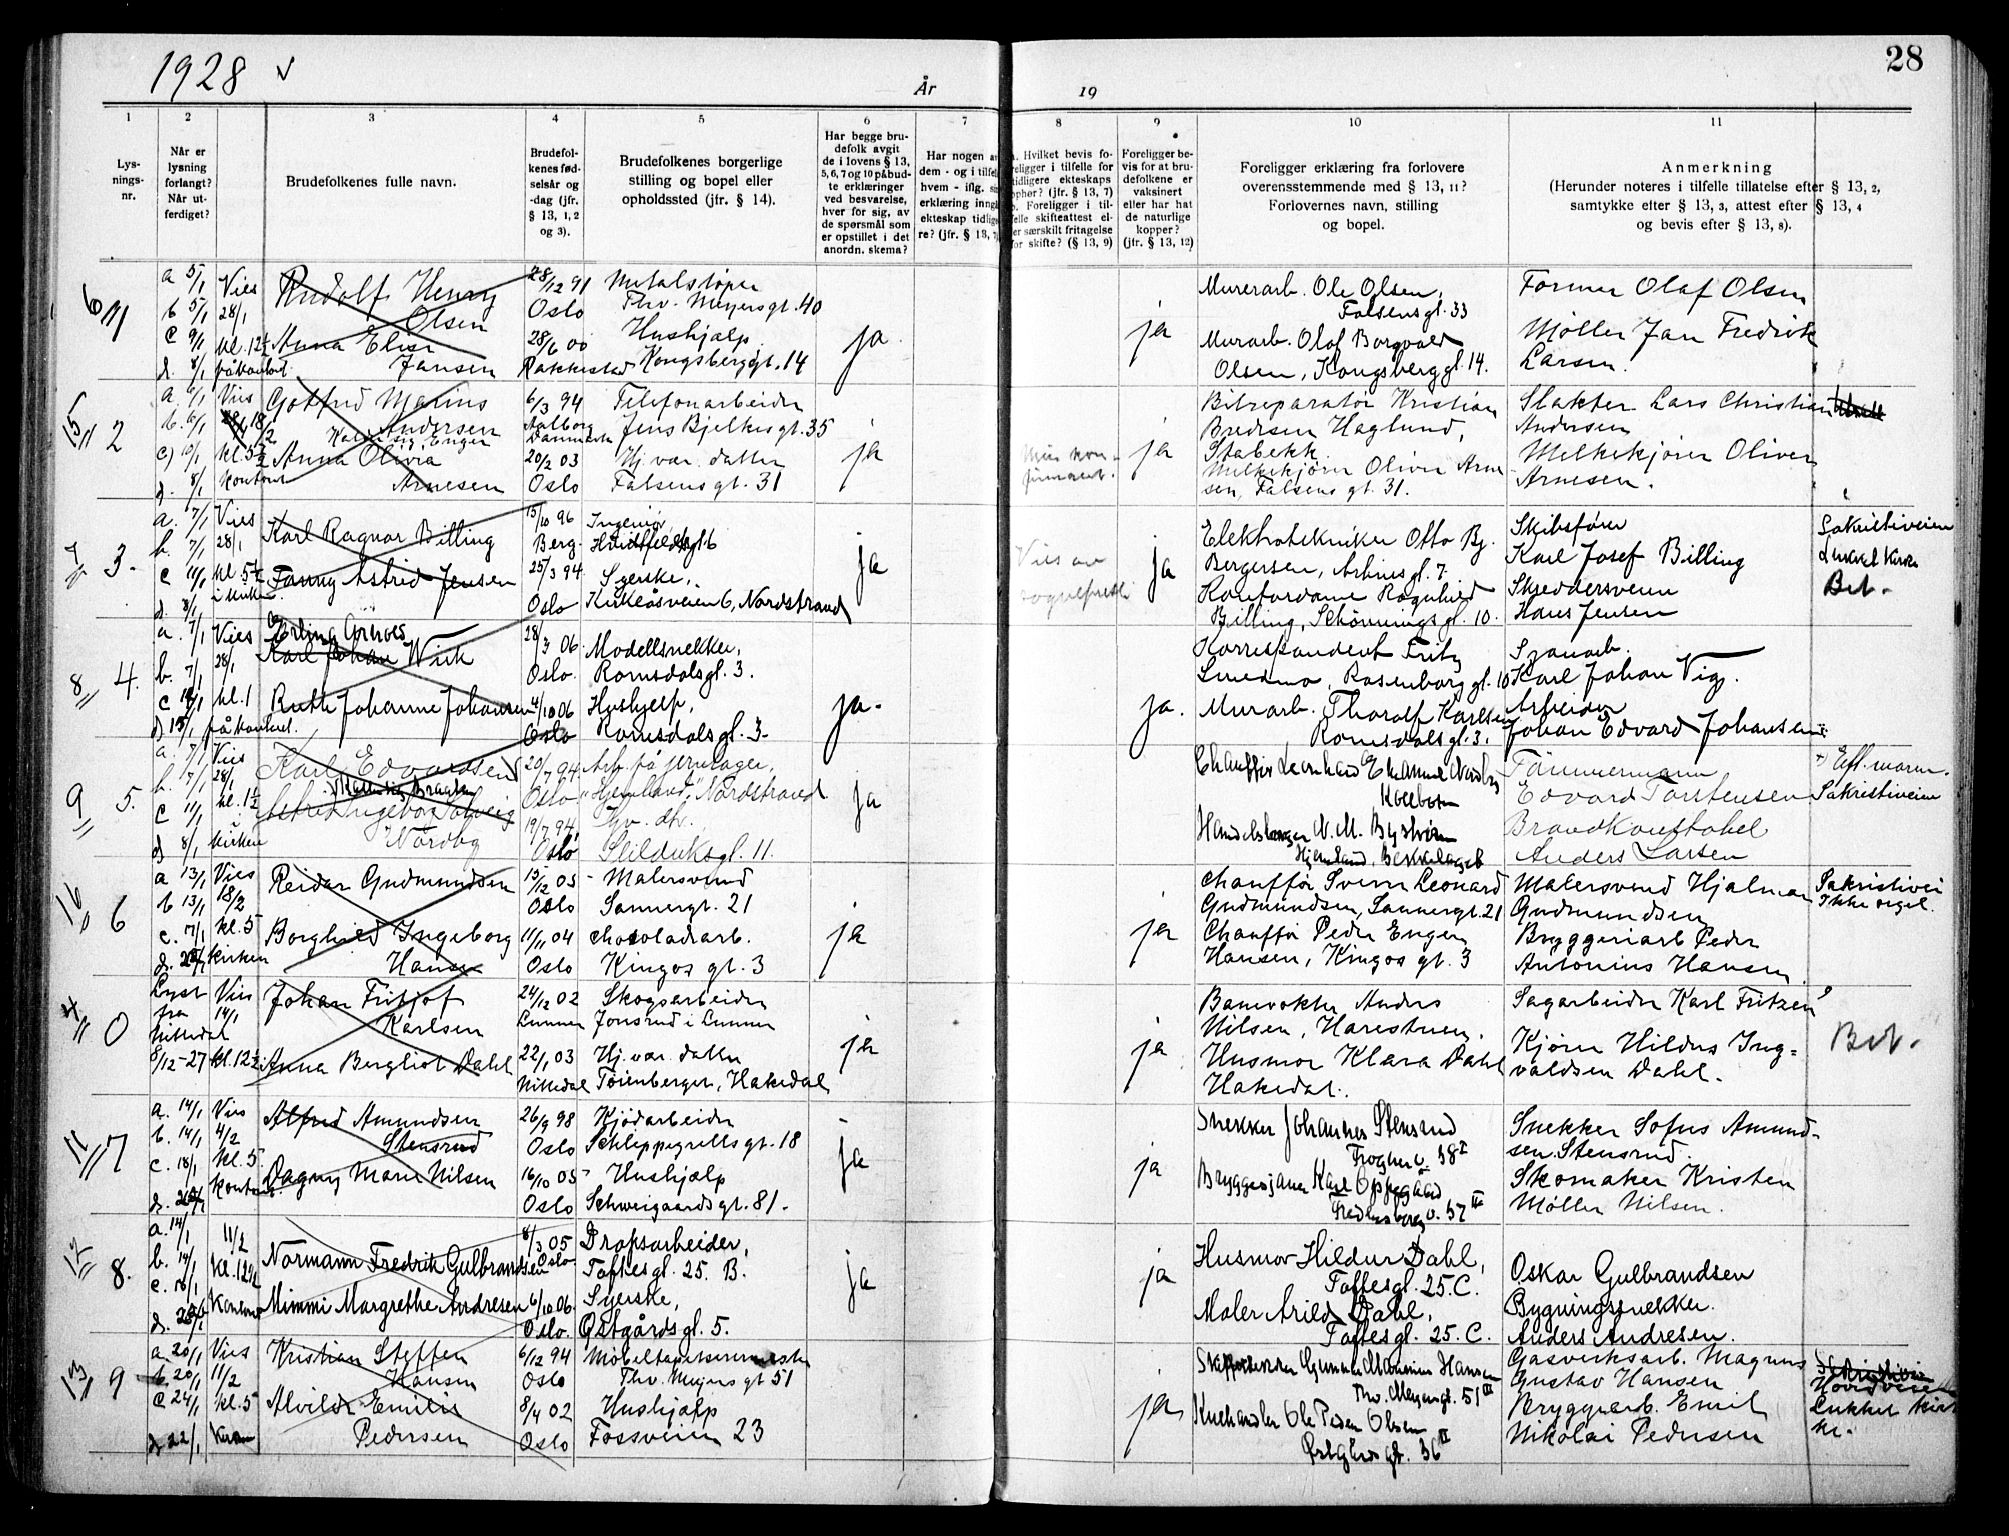 1928 v
28
År
19
1
2
3
4
5
6
7
8
9
10
11
Lys-
nings-
nr.
Når er
lysning
forlangt?
Når ut-
ferdiget?
Brudefolkenes fulle navn.
Brudefol-
kenes fød-
selsår og
-dag (jfr.
§ 13, 1, 2
og 3).
Brudefolkenes borgerlige
stilling og bopel eller
opholdssted (jfr. § 14).
Har begge bru-
defolk avgit
de i lovens § 13,
5, 6, 7 og 10 påbud-
te erklæringer
ved besvarelse,
hver for sig, av
de spørsmål som
er opstillet i det
anordn. skema?
Har nogen a
dem - og i tilfel
hvem - iflg. si
erklæring inngå
ekteskap tidlige
re? (jfr. § 13, 7
a. Hvilket bevis fo-
religger i tilfelle for
tidligere ekteskaps
ophør? (jfr. § 13, 7)
b. Foreligger i til-
felle skifteattest el-
er særskilt fritagelse
for skifte? (§ 13, 9)
Foreligger be-
vis for at bru-
defolkene er
vaksinert
eller har hat
de naturlige
kopper?
(jfr. § 13, 12)
Foreligger erklæring fra forlovere
overensstemmende med § 13, 11?
Forlovernes navn, stilling
og bopel.
Anmerkning
(Herunder noteres i tilfelle tillatelse efter § 13, 2,
samtykke efter § 13, 3, attest efter § 13, 4
og bevis efter § 13, 8).
a 5/1 Vies Rudolf Henry 28/12 91 Metalstøper
b 5/1 28/1 Olsen Oslo Thv. Meyersgt. 40
c 9/1 kl. 12½ Anna Elise 28/6 00 Hushjælp ja
d. 8/1 på kontoret. Jansen Rakkestad Kongsberggt. 14
Murerarb. Ole Olsen, Former Olaf Olsen
Falsensgt. 33
ja Murarb. Olaf Borgvald Møller Jan Fredrik
Olsen, Kongsberggt. 14. Larsen.
2
a. 6/1 Vies Gotfred Marius 6/3 94 Telefonarbeider
b. 6/1 Andersen Aalborg Danmark Jens Bjelkesgt. 35
Enger
c) 10/1 kl. 5½ Anna Olivia 20/2 03 Hj. vær. datter ja
d. 8/1 kontoret Arnesen Oslo Falsens gt. 31
Bilreparatør Kristian Slakter Lars Christian
Bredesen Haglund, Andersen
ja Stabekk. Melkekjører Oliver
Melkekjører Oliver Arne- Arnesen.
sen, Falsens gt. 31.
3.
a. 7/1 Vies Karl Ragnar Billing 15/10 96 Ingeniør
b. 7/1 28/1 Berg.
c 11/1 kl 5½ Fanny Astrid Jensen 25/3 94 Syerske, ja
d. 8/1 i kirken Oslo Kirkeåsveien 6, Nordstrand
Vies av
sogneprest
ja Elektrotekniker Otto Bj. Skibsfører Sakristiveien
Bergersen, Karl Josef Billing Lukket Kirke
Kontordame Ragnhild Skreddersvenn Bet.
Billing, Schønningsgt. 10. Hans Jensen
4.
a. 7/1 Vies Erling 28/3 06 Modellsnekker,
b. 7/1 28/1 Karl Johan Wiik Oslo. Romsdalsgt. 3.
c 14/1 kl. 1 Ruth Johanne Johansen 4/10 06 Hushjelp, ja.
d 13/1 på kontoret. Oslo Romsdalsgt. 3.
Korrespondent Fritz
Rosenborggt. 10 Karl Johan Vig.
ja. Murarb. Thoralf Karlsen Arbeider
Romsdalsgt. 3. Johan Edvard Johansen
9 5.
a. 7/1 Vies Karl Edvardsen 20/7 94 Arb. på jernlager,
b. 7/1 28/1 Oslo "Hjemland", Nordstrand
c 11/1 kl. 1½ Astrid Ingeborg Solveig 19/7 94 ja
d 8/1 kirken Nordby Oslo Seilduksgt. 11.
Tømmermann
Kolbotn Edvard Torstensen Sakristiveien
Brandkonstabel
Hjemland, Bekkelaget Anders Larsen
6
a 13/1 Vies Reidar Gudmundsen 15/12 05 Malersvend
b 13/1 18/2 Oslo Sannergt. 21
c. 17/1 kl. 5 Borghild Ingeborg 11/11 04 Chocoladearb. ja
kirken Hansen Oslo Kingos gt. 3
Chauffør Sverre Leonard Malersvend Hjalmar
Gudmundsen, Sannergt. 21 Gudmundsen Ikke orgel.
ja Chauffør Peder Enger Bryggeriarb Peder
Hansen, Kingos gt. 3 Antonius Hansen
0
Lyst Vies Johan Fritjof 24/12 02 Skogsarbeider
fra 14/1 Karlsen Lunner Jonsrud i Lunner
Nittedal
8/12-27 kl. 12½ Anna Bergliot Dahl 22/1 03 Hj. vær. datter ja
Nittedal Tøienberget, Hakedal
Banevokter Anders Sagarbeider Karl Fritzen
Nilsen, Harestuen.
ja Husmor Klara Dahl Kjører Hildus Ing- Bet.
Hakedal. valdsen Dahl.
7
a. 14/1 Vies Alfred Amundsen 26/9 98 Kjødarbeider
b. 14/1 4/2 Stensrud Oslo Schleppegrellsgt. 18
c. 18/1 kl. 5. Dagny Marie Nilsen 16/10 05 Hushjælp ja
kontoret. Oslo Schweigaardsgt. 81.
Snekker Johannes Stensrud Snekker Sofus Amund-
Frogner v. 38 I sen Stensrud.
ja Bryggesjauer Karl Oppegaard Skomaker Kristen
Fredensborg v. 57 III Møller Nilsen.
8.
a. 14/1 11/2 Normann Fredrik Gulbrandsen 8/3 05 Dropsarbeider,
b. 14/1 kl. 12½ Oslo Toftesgt. 25. B.
c. 18/1 kontoret Mimmi Margrethe Andresen 6/10 06. Syerske, ja
Oslo. Østgårdsgt. 5.
ja Husmor Hildur Dahl, Oskar Gulbrandsen
Toftesgt. 25. C.
Maler Arild Dahl, Bygningssnekker.
Toftesgt. 25. C. Anders Andresen.
9
a. 20/1 Vies Kristian Steffen 6/12 94 Møbeltapetserermester
b. 20/1 11/2 Hansen Oslo Thv. Meyers gt 51
c 24/1 kl. 5 Alvilde Emilie 8/4 02 Hushjælp
d 22/1 Pedersen Oslo Fossveien 23
Gunnar Hansen Gasverksarb. Magnus
Thv. Meyersgt. 51 III Gustav Hansen
ja Ole Peder Olsen Bryggeriarb. Emil Lukket kir-
36 II Nikolai Pedersen ke.